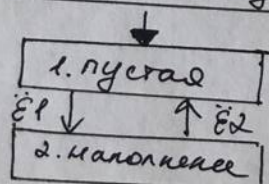 1. пустая
Ё1 Ё2
2. наполнение